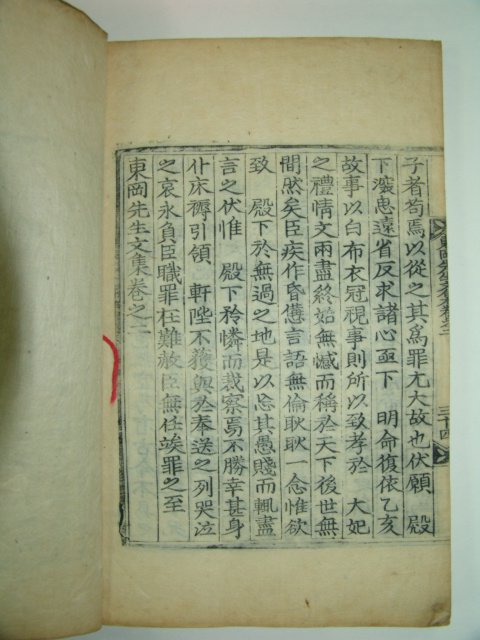 子者苟焉以從之其爲罪尤大故也伏願 殿
下濬思遠省反求諸心亟下 明命復依乙亥
故事以白布衣冠視事則所以致孝於 大妃
之禮情文兩盡終始無憾而稱於天下後世無
間然矣臣疾作昏憊言語無倫耿耿一念惟欲
致 殿下於無過之地是以忘其愚賤而輒盡
言之伏惟 殿下矜憐而裁察焉不勝幸甚身
仆床褥引領 軒陛不獲與於奉送之列哭泣
之哀永負臣職罪在難赦臣無任竢罪之至
東岡先生文集卷之二
三十四